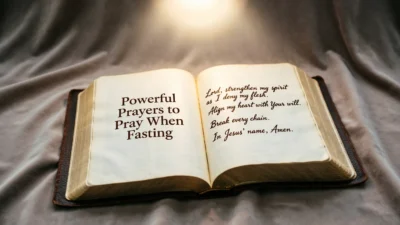 Powerful
Prayers to
Pray When
Fasting
Lord, strengthen my spirit
as I deny my flesh.
Align my heart with Your will.
Break every chain.
In Jesus' name, Amen.